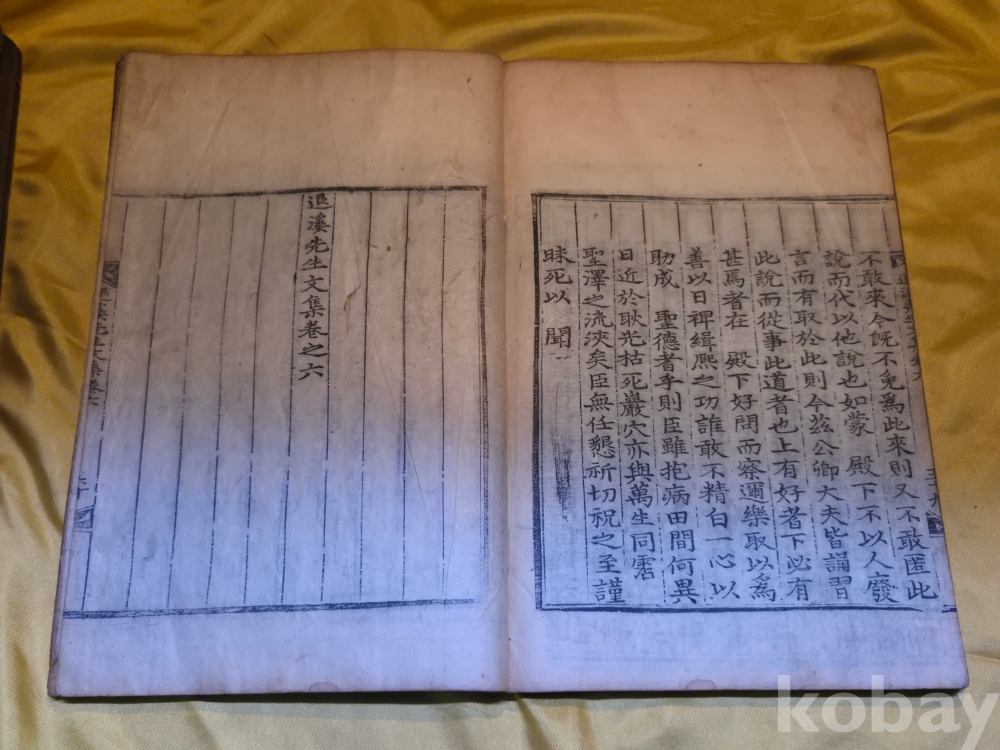 不敢來今旣不免爲此來則又不敢匿此
說而代以他說也如蒙 殿下不以人廢
言而有取於此則今玆公卿大夫皆誦習
此說而從事此道者也上有好者下必有
甚焉者在 殿下好問而察邇樂取以爲
善以日裨緝熙之功誰敢不精白一心以
助成 聖德者乎則臣雖抱病田間何異
日近於耿光枯死巖穴亦與萬生同霑
聖澤之流浹矣臣無任懇祈切祝之至謹
昧死以 聞
退溪先生文集卷之六
退溪先生文集卷六
kobay